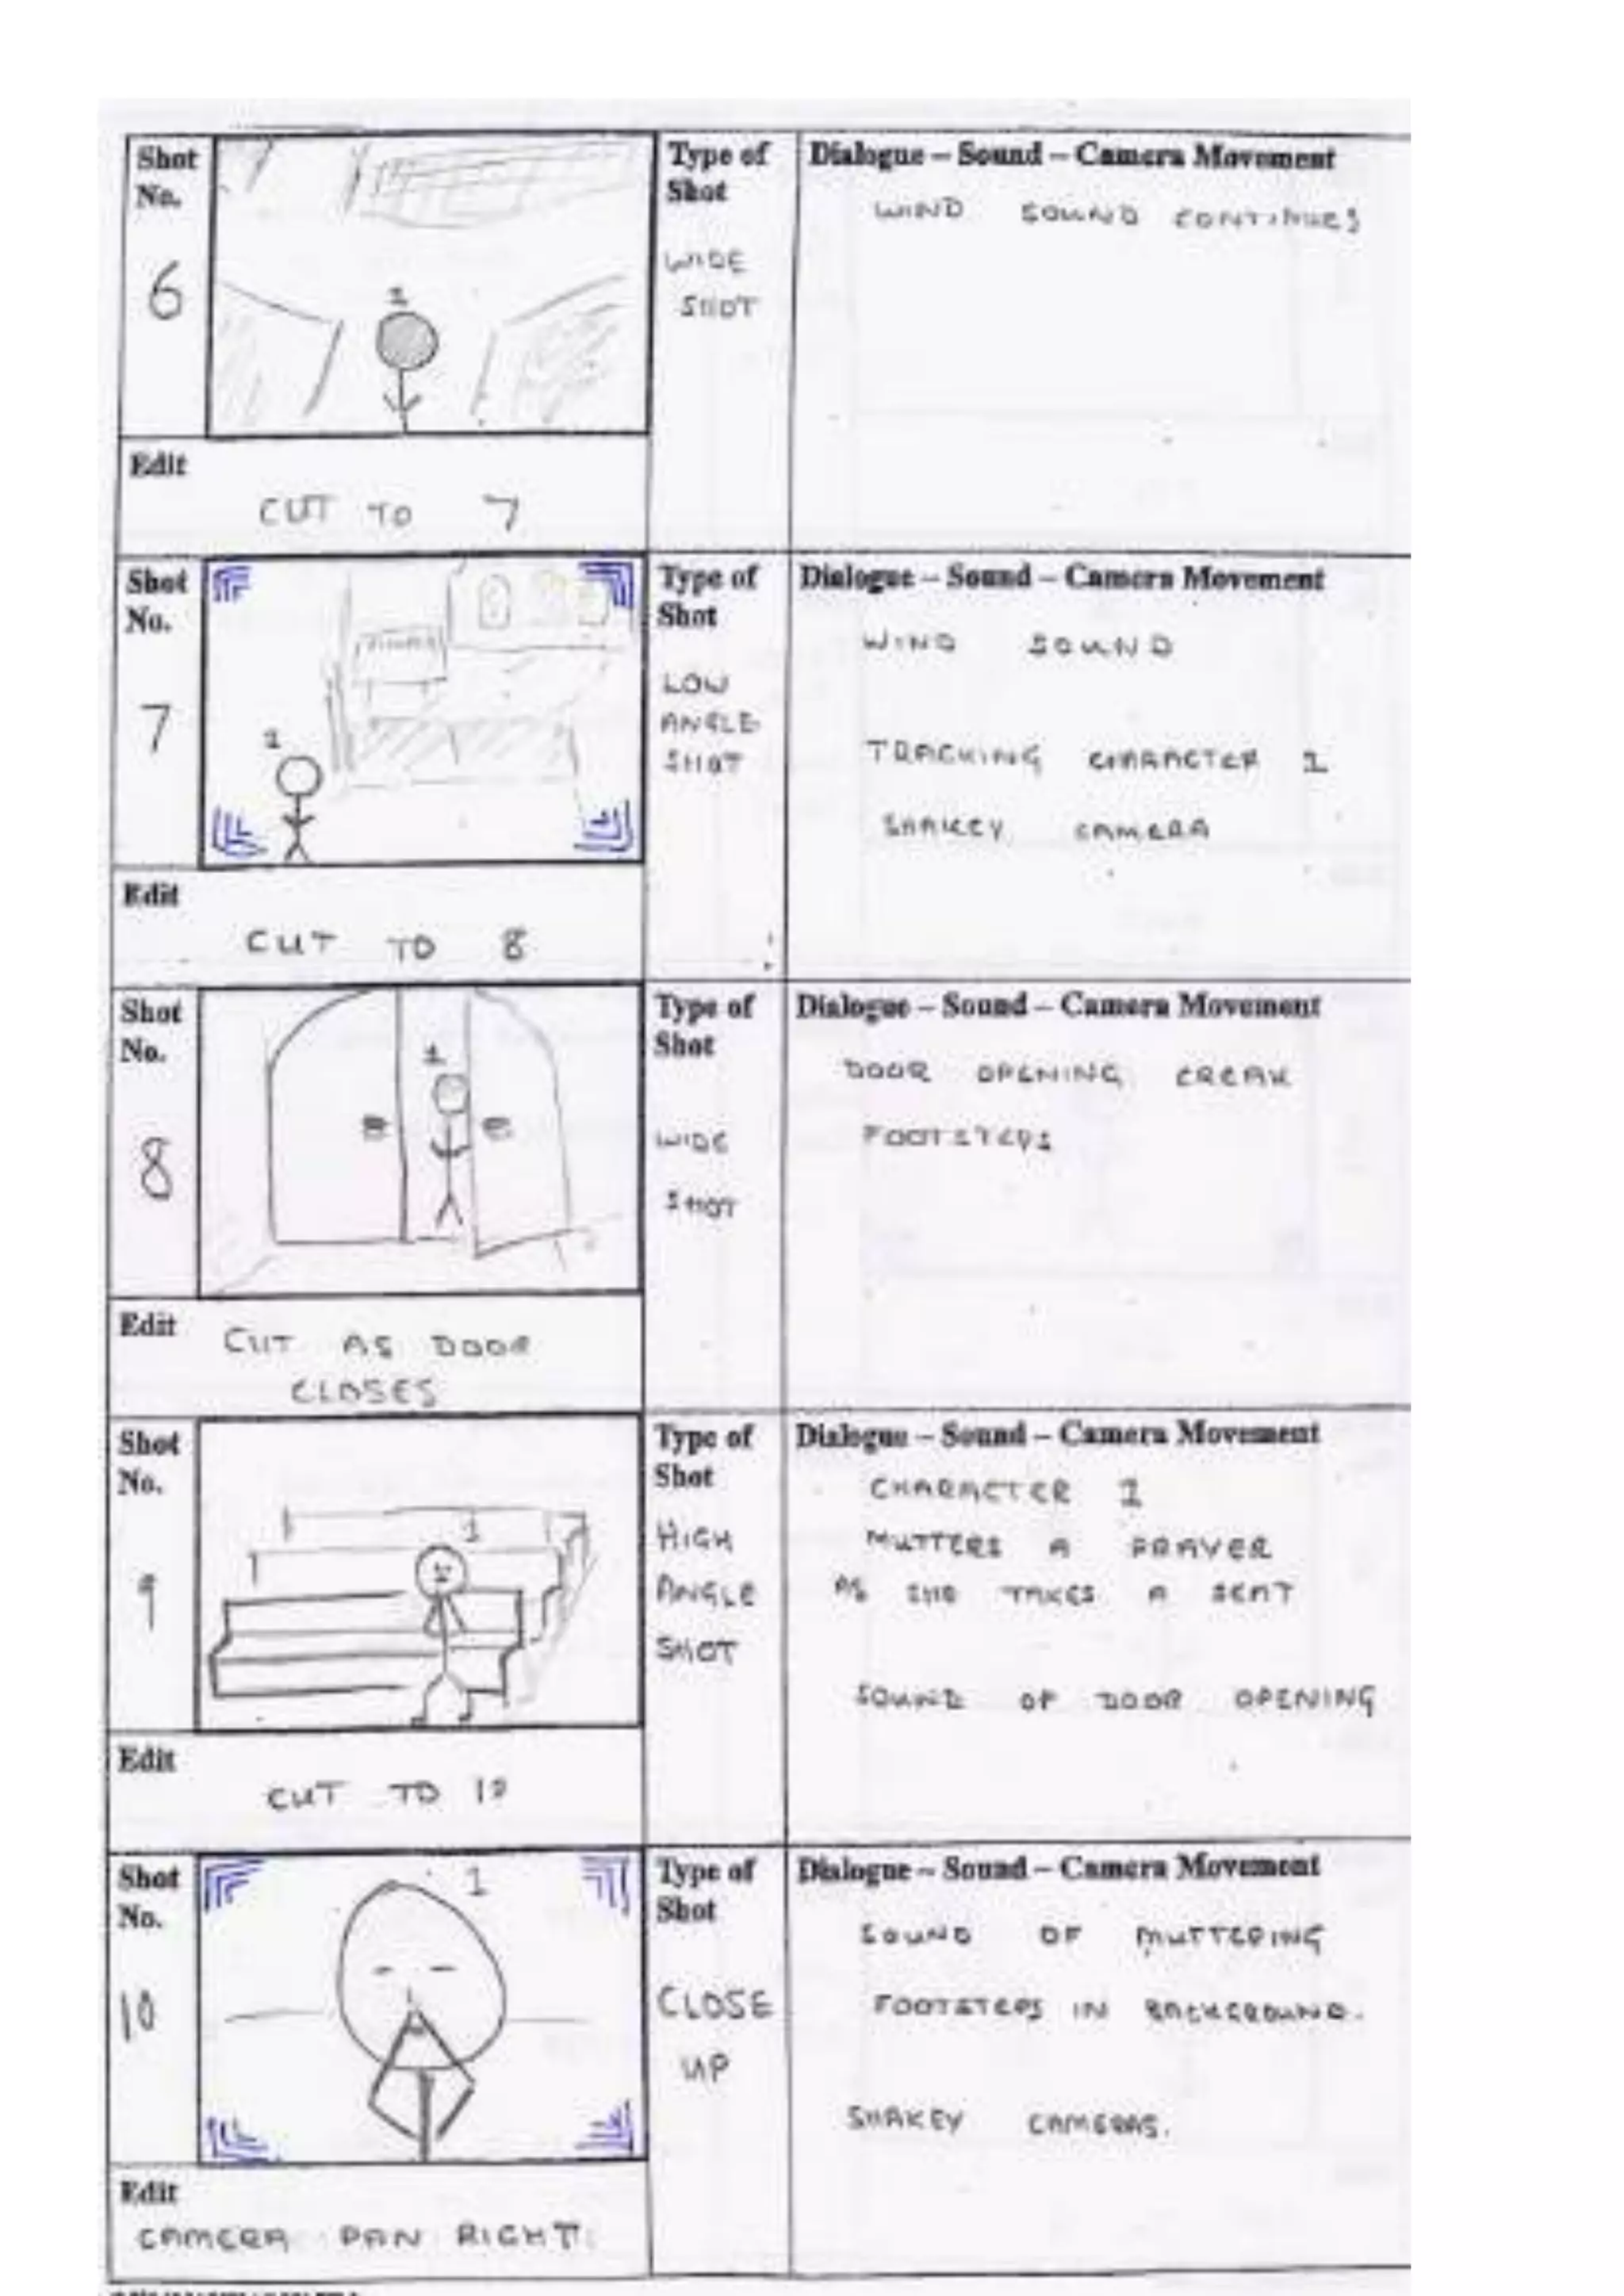 Shot
No.
6
1
Type of
Shot
WIDE
SHOT
Dialogue – Sound – Camera Movement
WIND SOUND CONTINUES
Edit
CUT TO 7
Shot
No.
7
1
Type of
Shot
LOW
ANGLE
SHOT
Dialogue – Sound – Camera Movement
WIND SOUND
TRACKING CHARACTER 1
SHAKEY CAMERA
Edit
CUT TO 8
Shot
No.
8
1
Type of
Shot
WIDE
SHOT
Dialogue – Sound – Camera Movement
DOOR OPENING CREAK
FOOTSTEPS
Edit
CUT AS DOOR
CLOSES
Shot
No.
9
1
Type of
Shot
HIGH
ANGLE
SHOT
Dialogue – Sound – Camera Movement
CHARACTER 1
MUTTERS A PRAYER
AS SHE TAKES A SEAT
SOUND OF DOOR OPENING
Edit
CUT TO 10
Shot
No.
10
1
Type of
Shot
CLOSE
UP
Dialogue – Sound – Camera Movement
SOUND OF MUTTERING
FOOTSTEPS IN BACKGROUND.
SHAKEY CAMERAS.
Edit
CAMERA PAN RIGHT